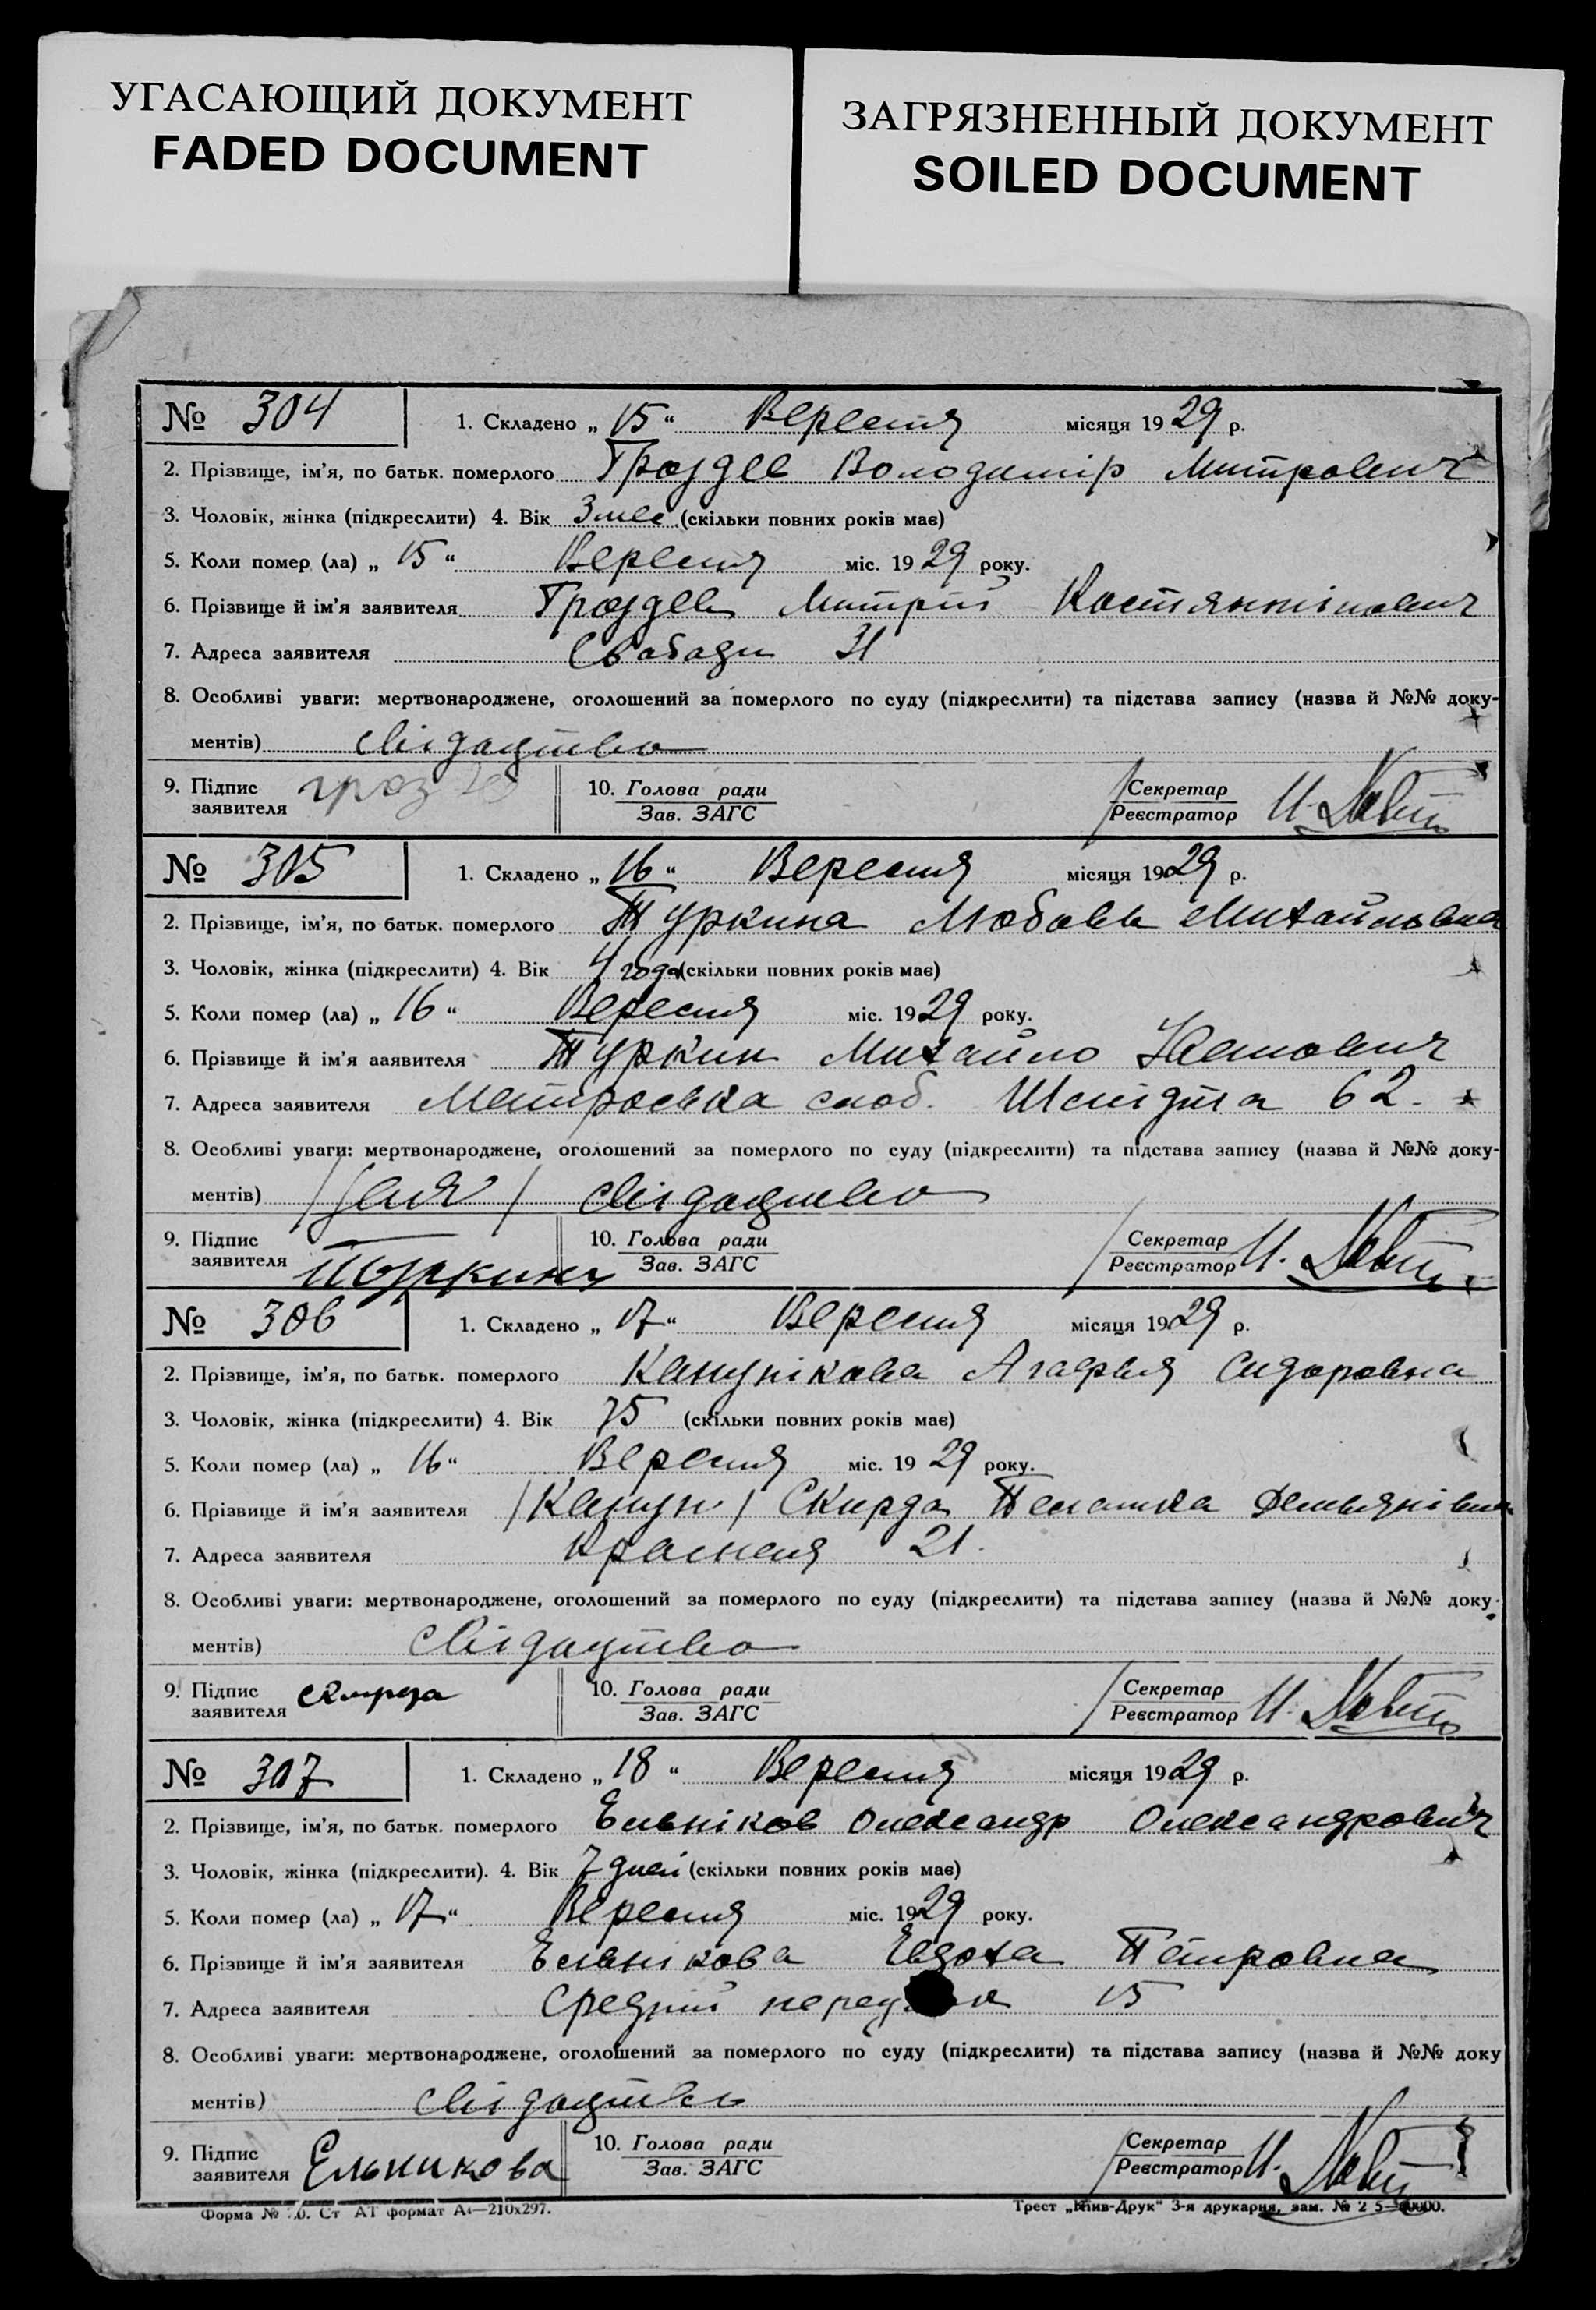 УГАСАЮЩИЙ ДОКУМЕНТ
FADED DOCUMENT
ЗАГРЯЗНЕННЫЙ ДОКУМЕНТ
SOILED DOCUMENT
№ 304 1. Складено „ 15 “ Вересня місяця 1929 р.
2. Прізвище, ім’я, по батьк. померлого Гроздев Володимір Митрович
3. Чоловік, жінка (підкреслити) 4. Вік 3 мес (скільки повних років має)
5. Коли помер (ла) „ 15 “ Вересня міс. 1929 року.
6. Прізвище й ім’я заявителя Гроздев Митрій Костянтінович
7. Адреса заявителя Свободи 31
8. Особливі уваги: мертвонароджене, оголошений за померлого по суду (підкреслити) та підстава запису (назва й №№ доку-
ментів) свідоцтво
9. Підпис заявителя гроздев 10. Голова ради Зав. ЗАГС Секретар Реєстратор И.
№ 305 1. Складено „ 16 “ Вересня місяця 1929 р.
2. Прізвище, ім’я, по батьк. померлого Туркина Любовь Михайловна
3. Чоловік, жінка (підкреслити) 4. Вік 4 года (скільки повних років має)
5. Коли помер (ла) „ 16 “ Вересня міс. 1929 року.
6. Прізвище й ім’я ааявителя Туркин Михайло Иванович
7. Адреса заявителя слоб. Шмідта 62
8. Особливі уваги: мертвонароджене, оголошений за померлого по суду (підкреслити) та підстава запису (назва й №№ доку-
ментів) свідоцтво
9. Підпис заявителя Туркин 10. Голова ради Зав. ЗАГС Секретар Реєстратор И.
№ 306 1. Складено „ 17 “ Вересня місяця 1929 р.
2. Прізвище, ім’я, по батьк. померлого Канунікова Агафья Сидоровна
3. Чоловік, жінка (підкреслити) 4. Вік 75 (скільки повних років має)
5. Коли помер (ла) „ 16 “ Вересня міс. 1929 року.
6. Прізвище й ім’я заявителя /Канун/ Скирда Пелашка Демьянівна
7. Адреса заявителя Красная 21.
8. Особливі уваги: мертвонароджене, оголошений за померлого по суду (підкреслити) та підстава запису (назва й №№ доку-
ментів) свідоцтво
9. Підпис заявителя скирда 10. Голова ради Зав. ЗАГС Секретар Реєстратор И.
№ 307 1. Складено „ 18 “ Вересня місяця 1929 р.
2. Прізвище, ім’я, по батьк. померлого Ельніков Олександр Олександрович
3. Чоловік, жінка (підкреслити). 4. Вік 7 дней (скільки повних років має)
5. Коли помер (ла) „ 17 “ Вересня міс. 1929 року.
6. Прізвище й ім’я заявителя Ельнікова Евдоха Петровна
7. Адреса заявителя Средній 15
8. Особливі уваги: мертвонароджене, оголошений за померлого по суду (підкреслити) та підстава запису (назва й №№ доку
ментів) свідоцтво
9. Підпис заявителя Ельникова 10. Голова ради Зав. ЗАГС Секретар Реєстратор И.
Форма № Ст АТ формат А4—210х297. Трест „Київ-Друк“ 3-я друкарня, зам. №